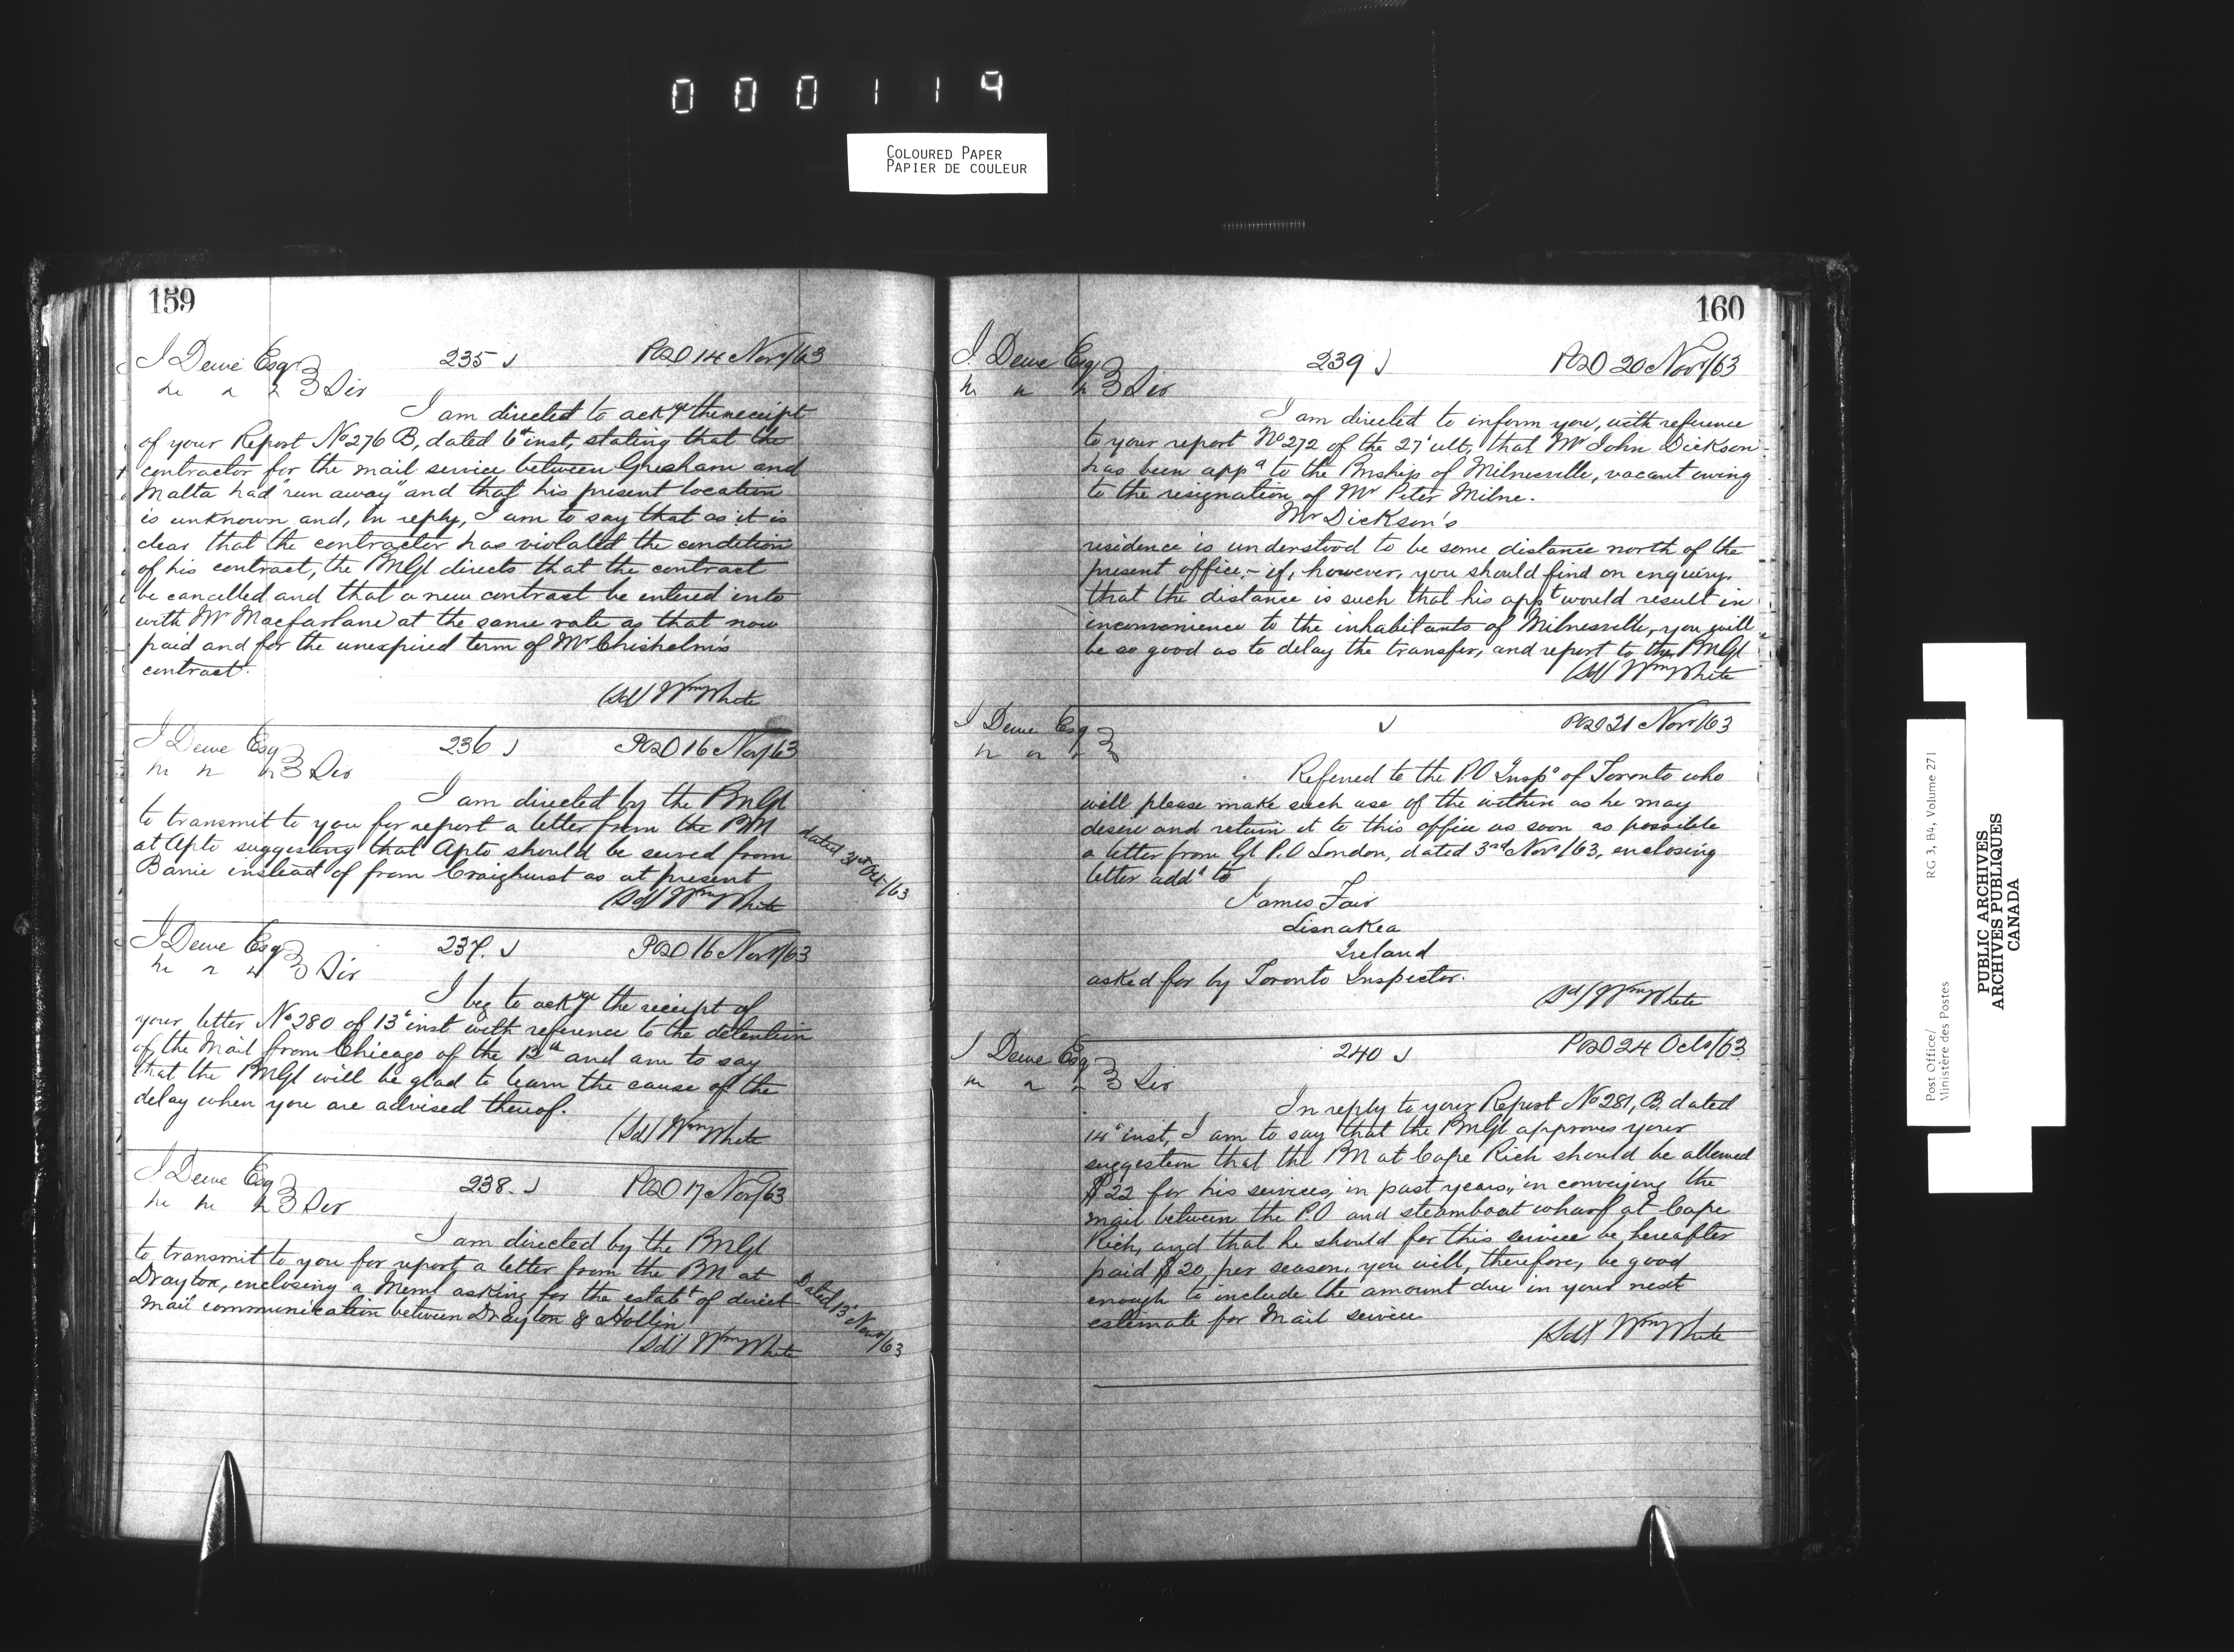 000119
COLOURED PAPER
PAPIER DE COULEUR
159
J Dewe Esqr 235 POD 14 Novr/63
Sir
I am directed to ackge the receipt
of your Report No 276 B, dated 6th inst, stating that the
contractor for the mail service between Gresham and
Malta had "run away" and that his present location
is unknown and, in reply, I am to say that as it is
clear that the contractor has violated the condition
of his contract, the PMGl directs that the contract
be cancelled and that a new contract be entered into
with Mr Macfarlane at the same rate as that now
paid and for the unexpired term of Mr Chisholm's
contract.
(Sd) Wm White
J Dewe Esq 236 POD 16 Nov/63
Sir
I am directed by the PMGl
to transmit to you for report a letter from the PM
at Apto suggesting that Apto should be served from
Barrie instead of from Craighurst as at present
dated 31st Oct/63
(Sd) Wm White
J Dewe Esq 237. POD 16 Novr/63
Sir
I beg to ackge the receipt of
your letter No 280 of 13th inst with reference to the detention
of the Mail from Chicago of the 12th and am to say
that the PMGl will be glad to learn the cause of the
delay when you are advised thereof.
(Sd) Wm White
J Dewe Esq 238. POD 17 Nov/63
Sir
I am directed by the PMGl
to transmit to you for report a letter from the PM at
Drayton, enclosing a Meml asking for the estabt of direct
Mail communication between Drayton & Hollin
Dated 13th Novr/63
(Sd) Wm White
160
J. Dewe Esq 239 POD 20 Novr/63
Sir
I am directed to inform you, with reference
to your report No 272 of the 27th ult, that Mr John Dickson
has been appd to the Pmship of Milnesville, vacant owing
to the resignation of Mr Peter Milne.
Mr Dickson's
residence is understood to be some distance north of the
present office - if, however, you should find on enquiry,
that the distance is such that his appt would result in
inconvenience to the inhabitants of Milnesville, you will
be so good as to delay the transfer, and report to the PMGl
(Sd) Wm White
J Dewe Esq POD 21 Novr/63
Referred to the P.O Inspr of Toronto who
will please make such use of the within as he may
desire and return it to this office as soon as possible
a letter from Gl P.O London, dated 3rd Novr/63, enclosing
letter addd to
James Fair
Lisnakea
Ireland
asked for by Toronto Inspector.
(Sd) Wm White
J Dewe Esq 240 POD 24 Octr/63
Sir
In reply to your Report No 281, B. dated
14th inst, I am to say that the PMGl approves your
suggestion that the PM at Cape Rich should be allowed
$22 for his services, in past years, in conveying the
mail between the P.O and steamboat wharf at Cape
Rich, and that he should for this service be hereafter
paid $20 per season, you will, therefore, be good
enough to include the amount due in your next
estimate for Mail service
(Sd) Wm White
Post Office/
Ministère des Postes
RG 3, B4, Volume 271
PUBLIC ARCHIVES
ARCHIVES PUBLIQUES
CANADA